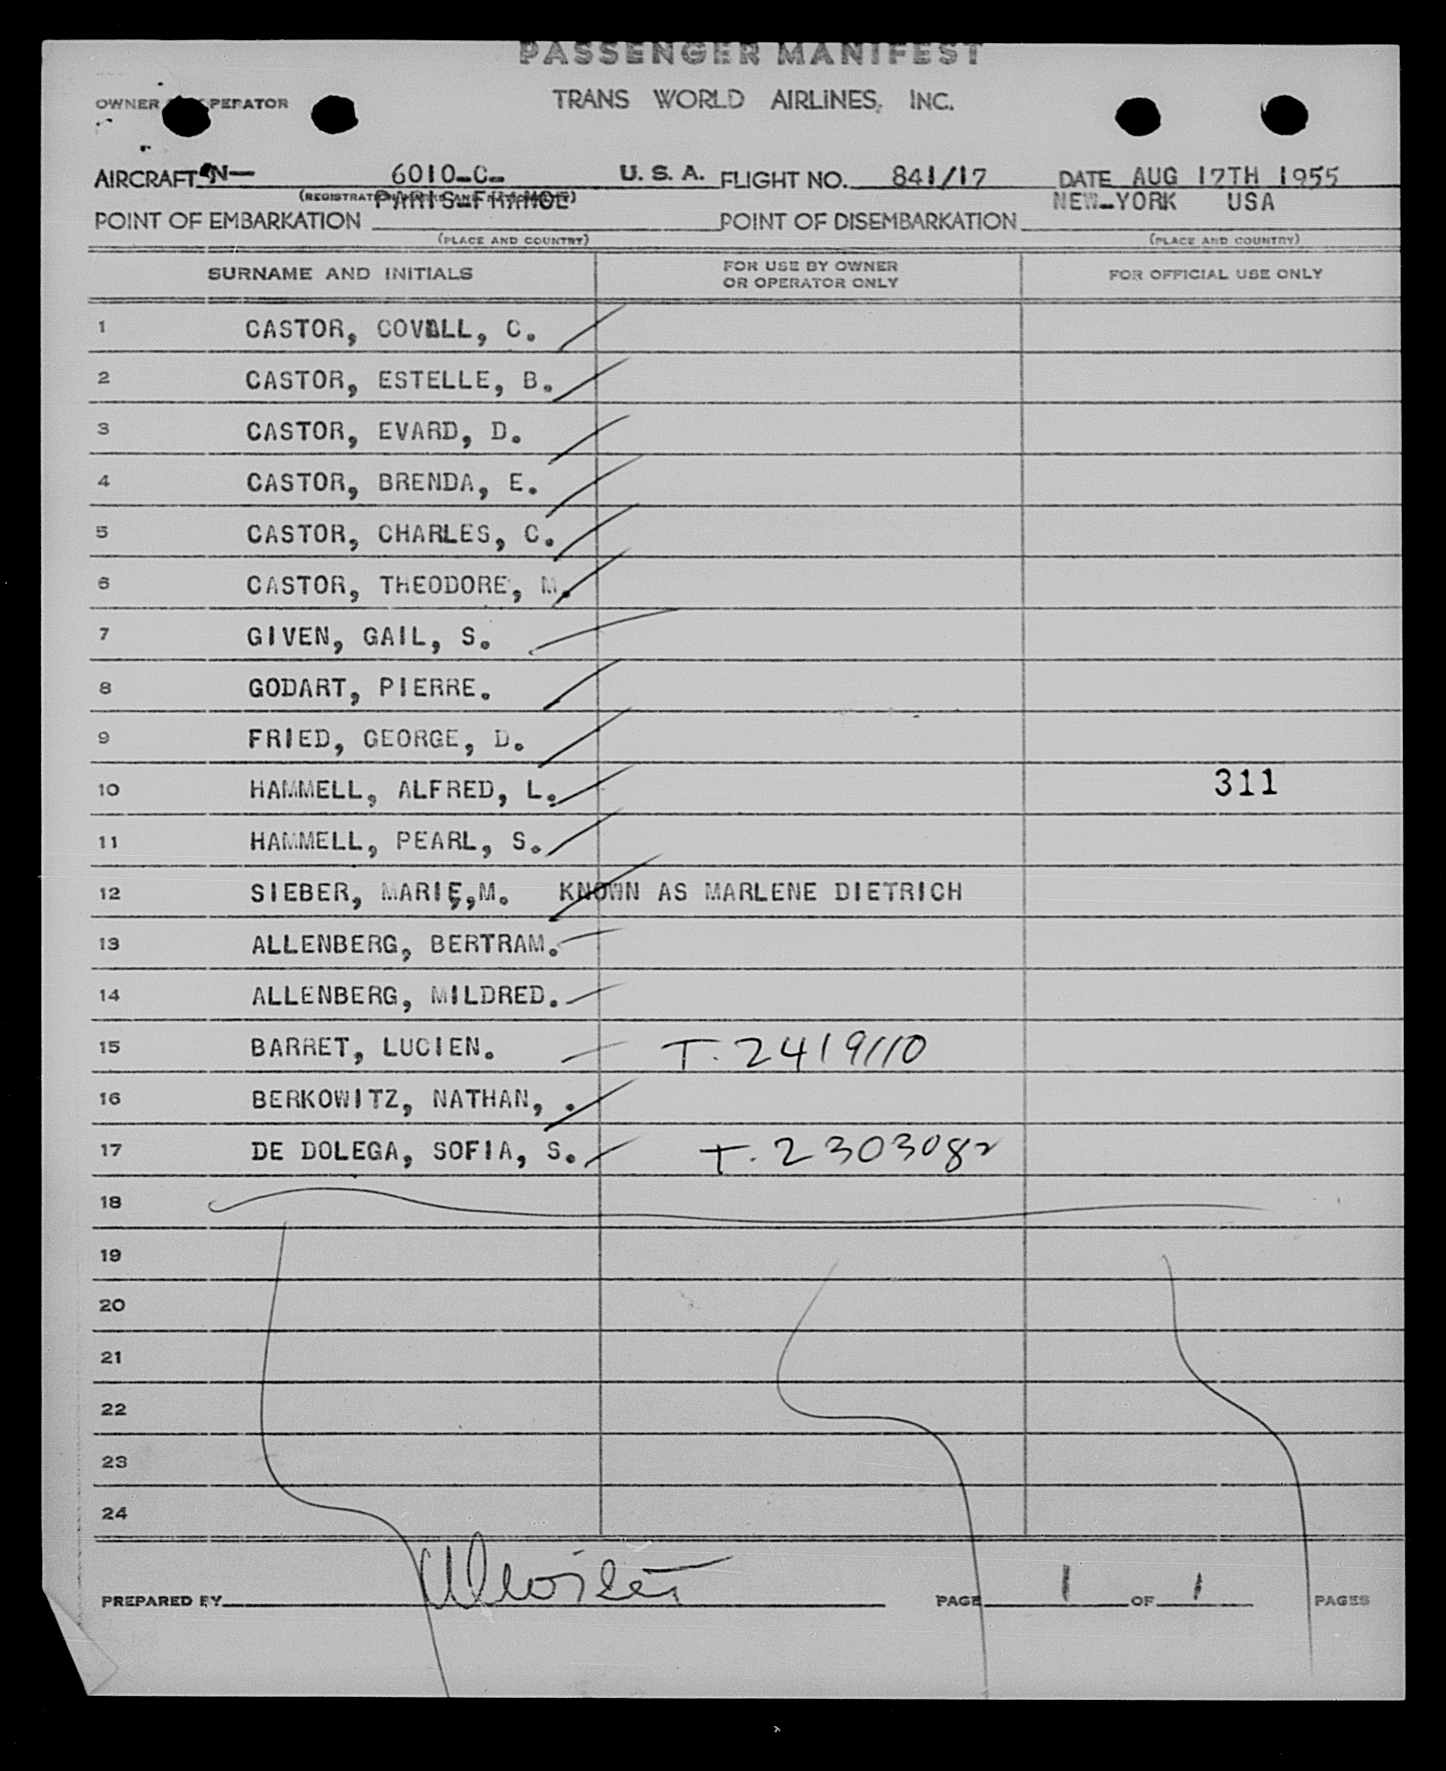 PASSENGER MANIFEST
OWNER OPERATOR TRANS WORLD AIRLINES, INC.
AIRCRAFT N— 6010-C- U. S. A. FLIGHT NO. 841/17 DATE AUG 17TH 1955
PARIS-FRANCE NEW-YORK USA
POINT OF EMBARKATION POINT OF DISEMBARKATION
(PLACE AND COUNTRY) (PLACE AND COUNTRY)
SURNAME AND INITIALS FOR USE BY OWNER OR OPERATOR ONLY FOR OFFICIAL USE ONLY
1 CASTOR, COVALL, C.
2 CASTOR, ESTELLE, B.
3 CASTOR, EVARD, D.
4 CASTOR, BRENDA, E.
5 CASTOR, CHARLES, C.
6 CASTOR, THEODORE, M.
7 GIVEN, GAIL, S.
8 GODART, PIERRE.
9 FRIED, GEORGE, D.
10 HAMMELL, ALFRED, L. 311
11 HAMMELL, PEARL, S.
12 SIEBER, MARIE,M. KNOWN AS MARLENE DIETRICH
13 ALLENBERG, BERTRAM.
14 ALLENBERG, MILDRED.
15 BARRET, LUCIEN. T. 2419110
16 BERKOWITZ, NATHAN, .
17 DE DOLEGA, SOFIA, S. T. 2303082
18
19
20
21
22
23
24
PREPARED BY PAGE 1 OF 1 PAGES